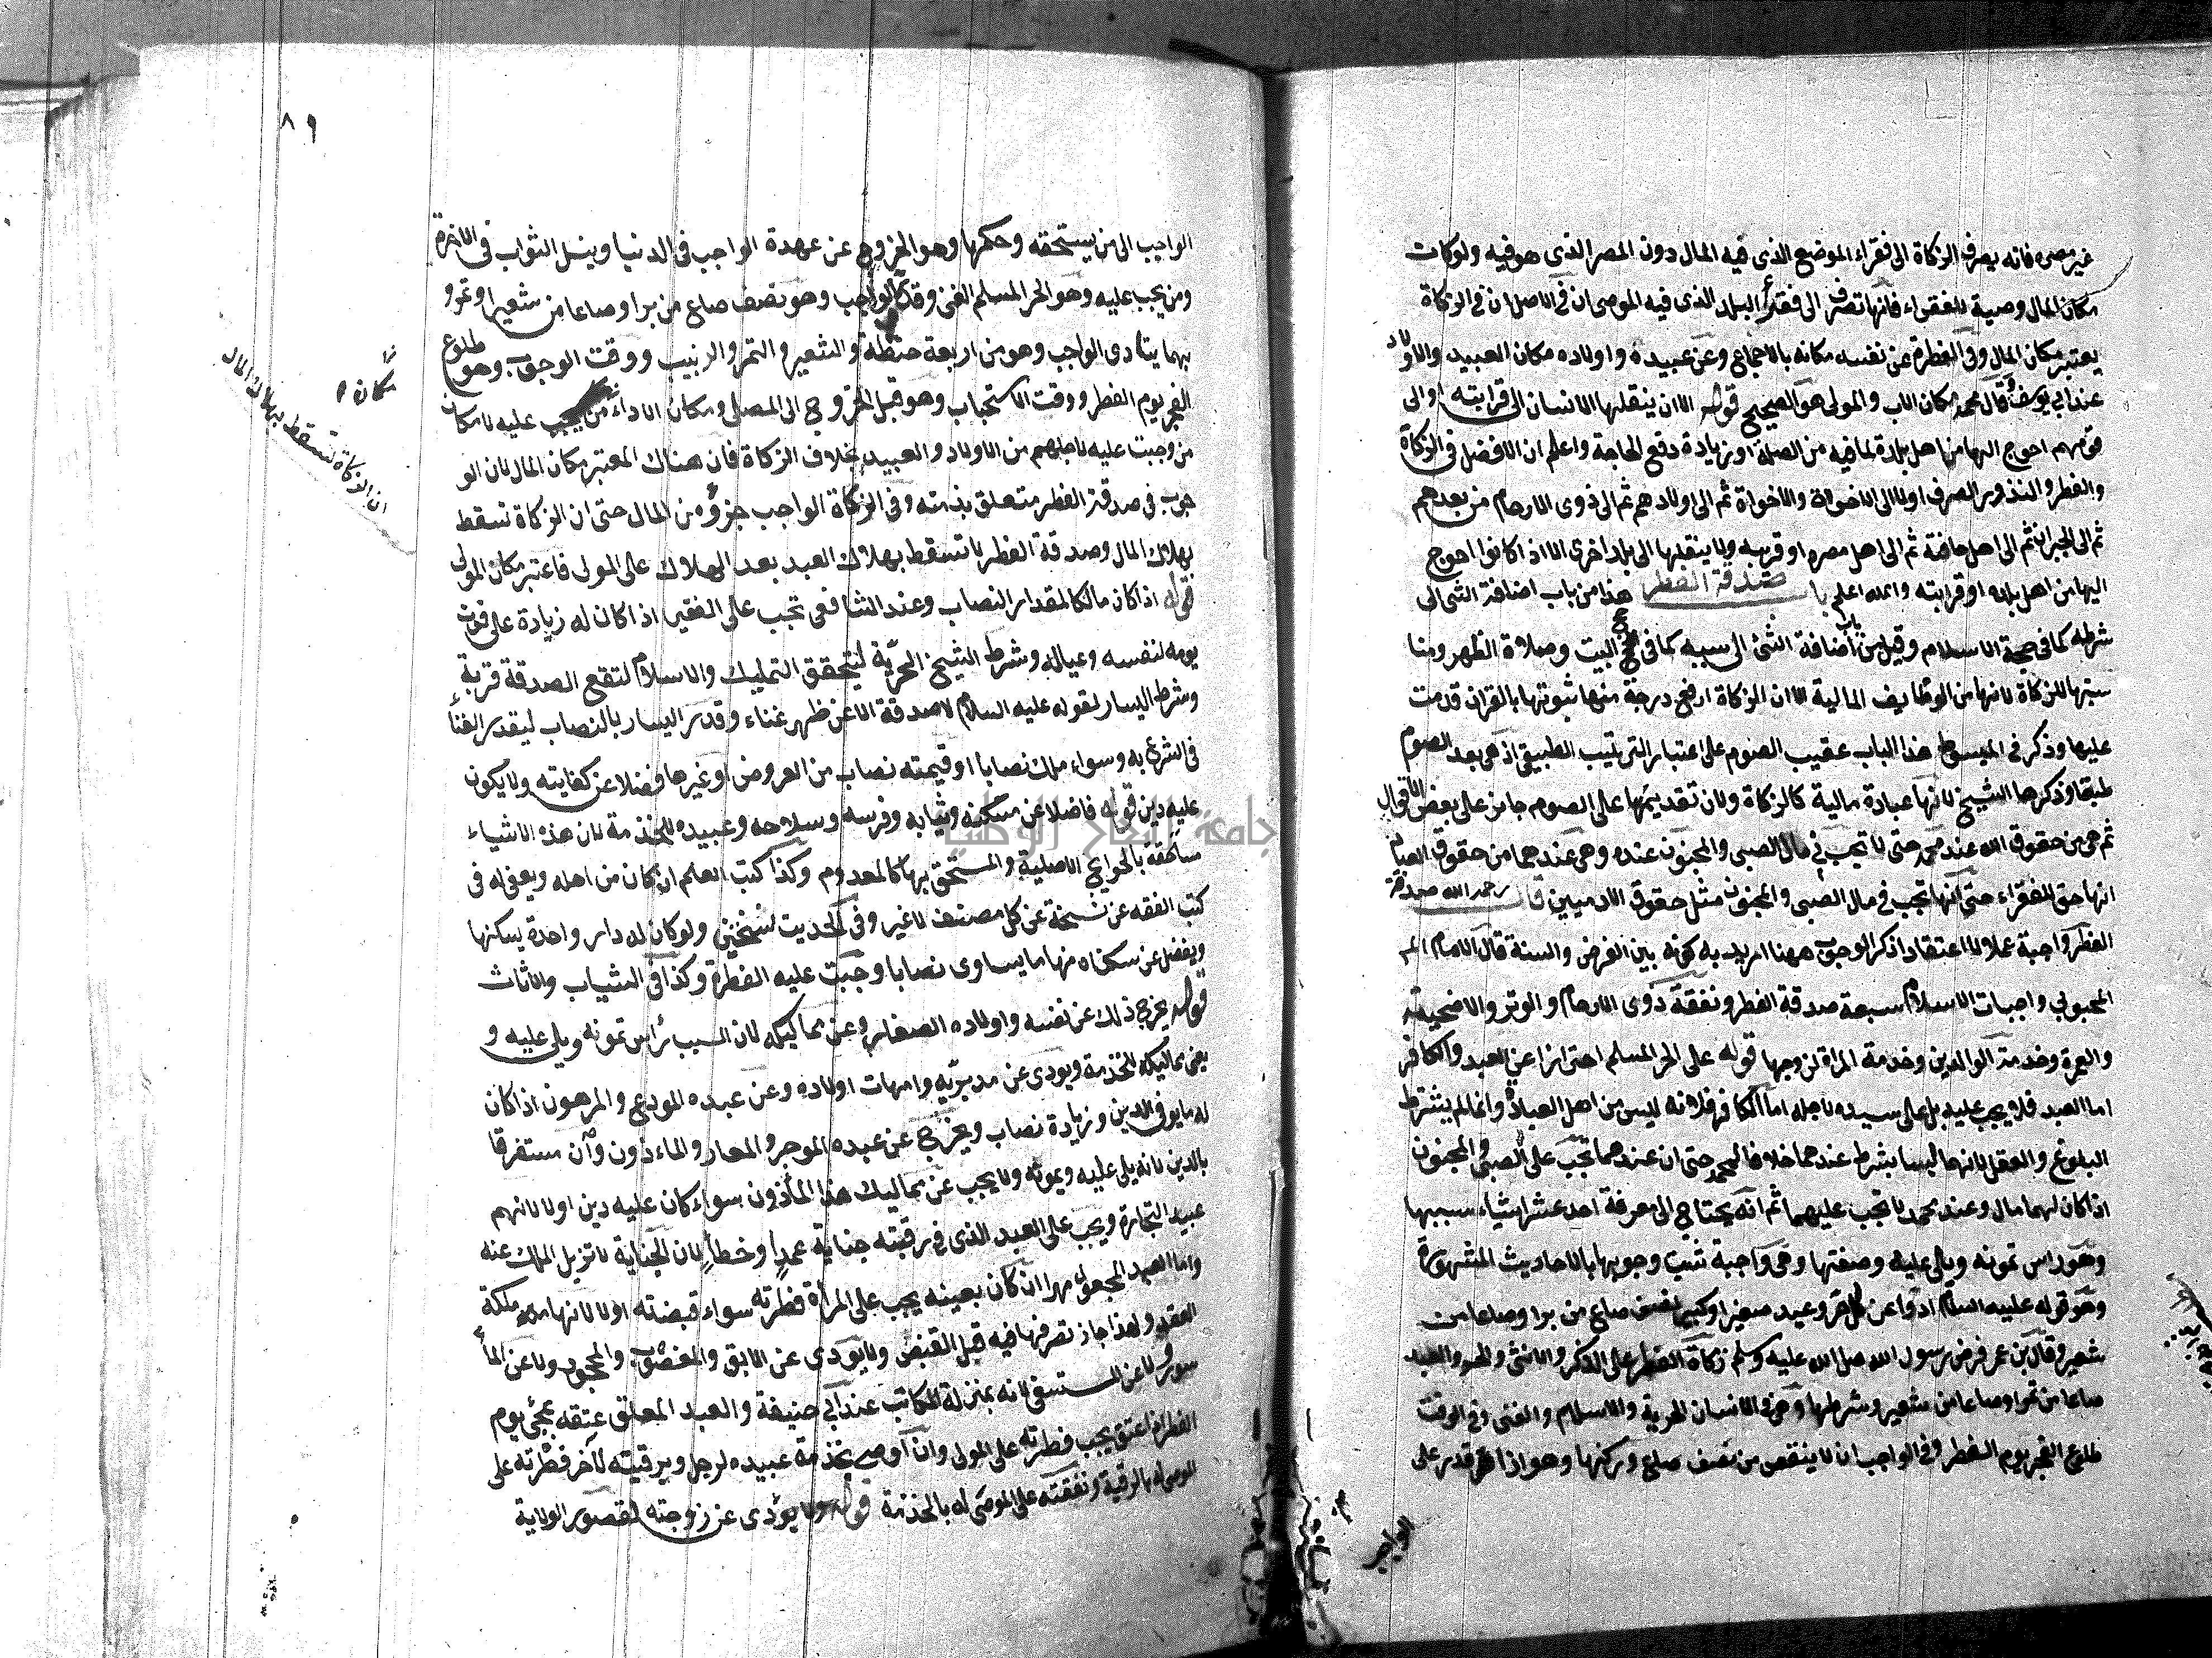 غير مصره فانه يصرف الزكاة الى فقراء الموضع الذى فيه المال دون المصر الذى هو فيه ولو كان
مكان المال وصية للفقراء فانها تصرف الى فقراء البلد الذى فيه الموصى ان فى الاصل ان فى الزكاة
يعتبر مكان المال وفى الفطرة عن نفسه مكانه بالاجماع وعن عبيده واولاده مكان العبيد والاولاد
عند ابى يوسف وقال محمد مكان الاب والمولى هو الصحيح قوله الا ان ينقلها الانسان الى قرابته او الى
قوم هم احوج اليها من اهل بلدة لما فيه من الصلة او زيادة دفع الحاجة واعلم ان الافضل فى الزكاة
والفطر والنذور الصرف اولا الى الاخوة والاخوات ثم الى اولادهم ثم الى ذوى الارحام من بعدهم
ثم الى الجيران ثم الى اهل حافته ثم الى اهل مصره او قريه ولا ينقلها الى بلد اخرى الا اذا كانوا احوج
اليها من اهل بلده او قرابته والله اعلم باب صدقة الفطر هذا من باب اضافة الشى الى
شرطه كما فى حجة الاسلام وقيل من اضافة الشئ الى سببه كما فى حج البيت وصلاة الظهر ومنا
سبتها للزكاة لانها من الوظايف المالية الا ان الزكاة ارفع درجة منها ثبوتها بالقران قدمت
عليها وذكر فى المبسوط هذا الباب عقيب الصوم على اعتبار الترتيب الطبيعى اذ هى بعد الصوم
طبعا وذكرها الشيخ لانها عبادة مالية كالزكاة ولان تقديمها على الصوم جايز على بعض الاقوال
ثم هى من حقوق الله عند محمد حتى لا تجب فى مال الصبى والمجنون عنده وهى عندهما من حقوق العباد
انها حق الفقراء حتى انها تجب فى مال الصبى والمجنون مثل حقوق الادميين قال رحمه الله صدقة
الفطر واجبة عملا لا اعتقادا ذكر الوجوب ههنا اريد به كونه بين الفرض والسنة قال الامام
المحبوبى واجبات الاسلام سبعة صدقة الفطر ونفقة ذوى الارحام والوتر والاضحية
والعمرة وخدمة الوالدين وخدمة المراة لزوجها قوله على الحر المسلم احترازا عن العبد والكافر
اما العبد فلا يجب عليه بل على سيده لاجله اما الكافر فلانه ليس من اهل العبادة وانما لم يشترط
البلوغ والعقل لانهما ليسا بشرط عندهما خلافا لمحمد حتى ان عندهما تجب على الصبى والمجنون
اذا كان لهما مال وعند محمد لا تجب عليهما ثم انه يحتاج الى معرفة احد عشر اشياء سببها
وهو راس تمونه ويلى عليه وصفتها وهى واجبة ثبت وجوبها بالاحاديث المشهورة
وهو قوله عليه السلام ادوا عن كل حر وعبد صغير او كبير نصف صاع من بر او صاعا من
شعير وقال بن عمر فرض رسول الله صلى الله عليه وسلم زكاة الفطر على الذكر والانثى والحر والعبد
صاعا من تمر او صاعا من شعير وشرطها وهى فى الانسان الحرية والاسلام والغنى وفى الوقت
طلوع الفجر يوم الفطر وفى الواجب ان لا ينقص من نصف صاع وركنها وهو اذا قدر على
الواجب
٨٩
الواجب الى من يستحقه وحكمها وهو الخروج عن عهدة الواجب فى الدنيا ونيل الثواب فى الاخرة
ومن يجب عليه وهو الحر المسلم الغنى وقدر الواجب وهو نصف صاع من بر او صاعا من شعير او تمر و
بهما يتادى الواجب وهو من اربعة حنطة والشعير والتمر والزبيب ووقت الوجوب وهو طلوع
الفجر يوم الفطر ووقت الاستحباب وهو قبل الخروج الى المصلى ومكان الاداء من يجب عليه لا مكان
من وجبت عليه لاجلهم من الاولاد والعبيد بخلاف الزكاة فان هناك المعتبر مكان المال لان الو
جوب فى صدقة الفطر متعلق بذمته وفى الزكاة الواجب جزؤه من المال حتى ان الزكاة تسقط
بهلاك المال وصدقة الفطر لا تسقط بهلاك العبد بعد الهلاك على المولى فاعتبر مكان المولى
قوله اذا كان مالكا لمقدار النصاب وعند الشافعى تجب على الفقير اذا كان له زيادة على قوت
يومه لنفسه وعياله وشرط الشيخ الحرية ليتحقق التمليك والاسلام لتقع الصدقة قربة
وشرط اليسار لقوله عليه السلام لا صدقة الا عن ظهر غناء وقدر اليسار بالنصاب ليقدر الغناء
فى الشرع به وسواء ملك نصابا او قيمته نصاب من العروض او غيرها فضلا عن كفايته ولا يكون
عليه دين قوله فاضلا عن مسكنه وثيابه وفرسه وسلاحه وعبيده للخذمة لان هذه الاشياء
مستحقة بالحوايج الاصلية والمستحق بها كالمعدوم وكذا كتب العلم ان كان من اهله ويعفى له فى
كتب الفقه عن نسخة عن كل مصنف لا غير وفى الحديث نسختين ولو كان له دار واحدة يسكنها
ويفضل عن سكناه منها ما يساوى نصابا وجبت عليه الفطرة وكذا فى الثياب والاثاث
قوله يخرج ذلك عن نفسه واولاده الصغار وعن مماليكه لان السبب رأس تمونه ويلى عليه و
يعنى مماليكه للخذمة ويودى عن مدبريه وامهات اولاده وعن عبده المودع والمرهون اذا كان
له ما يوفى الدين وزيادة نصاب ويخرج عن عبده الموجر والمعار والماءذون وان مستغرقا
بالدين لانه يلى عليه ويمونه ولا يجب عن مماليك هذا المأذون سواء كان عليه دين اولا لانهم
عبيد التجارة ويجب على العبد الذى فى رقبته جناية عمدا وخطأ لان الجناية لا تزيل الملك عنه
واما العبد المجعول مهرا ان كان بعينه يجب على المرأة فطرته سواء قبضته اولا لانها ملكة
العقد ولهذا جاز تصرفها فيه قبل القبض ولا يودى عن الابق والمغصوب والمحجوب ولا عن المأ
سور ولا عن المستسعى لانه بمنزلة المكاتب عند ابى حنيفة والعبد المعلق عتقه بمجئ يوم
الفطر اذا عتق يجب فطرته على المولى وان اوصى بخذمة عبيده لرجل وبرقبته لآخر فطرته على
الموصى له بالرقبة ونفقته على الموصى له بالخذمة قوله ولا يؤدى عن زوجته لقصور الولاية
مكان
ان الزكاة تسقط بهلاك المال
جامعة النجاح الوطنية